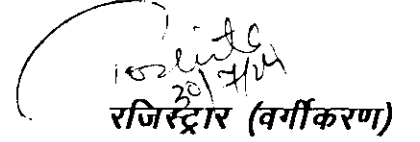 30/7/24
रजिस्ट्रार (वर्गीकरण)